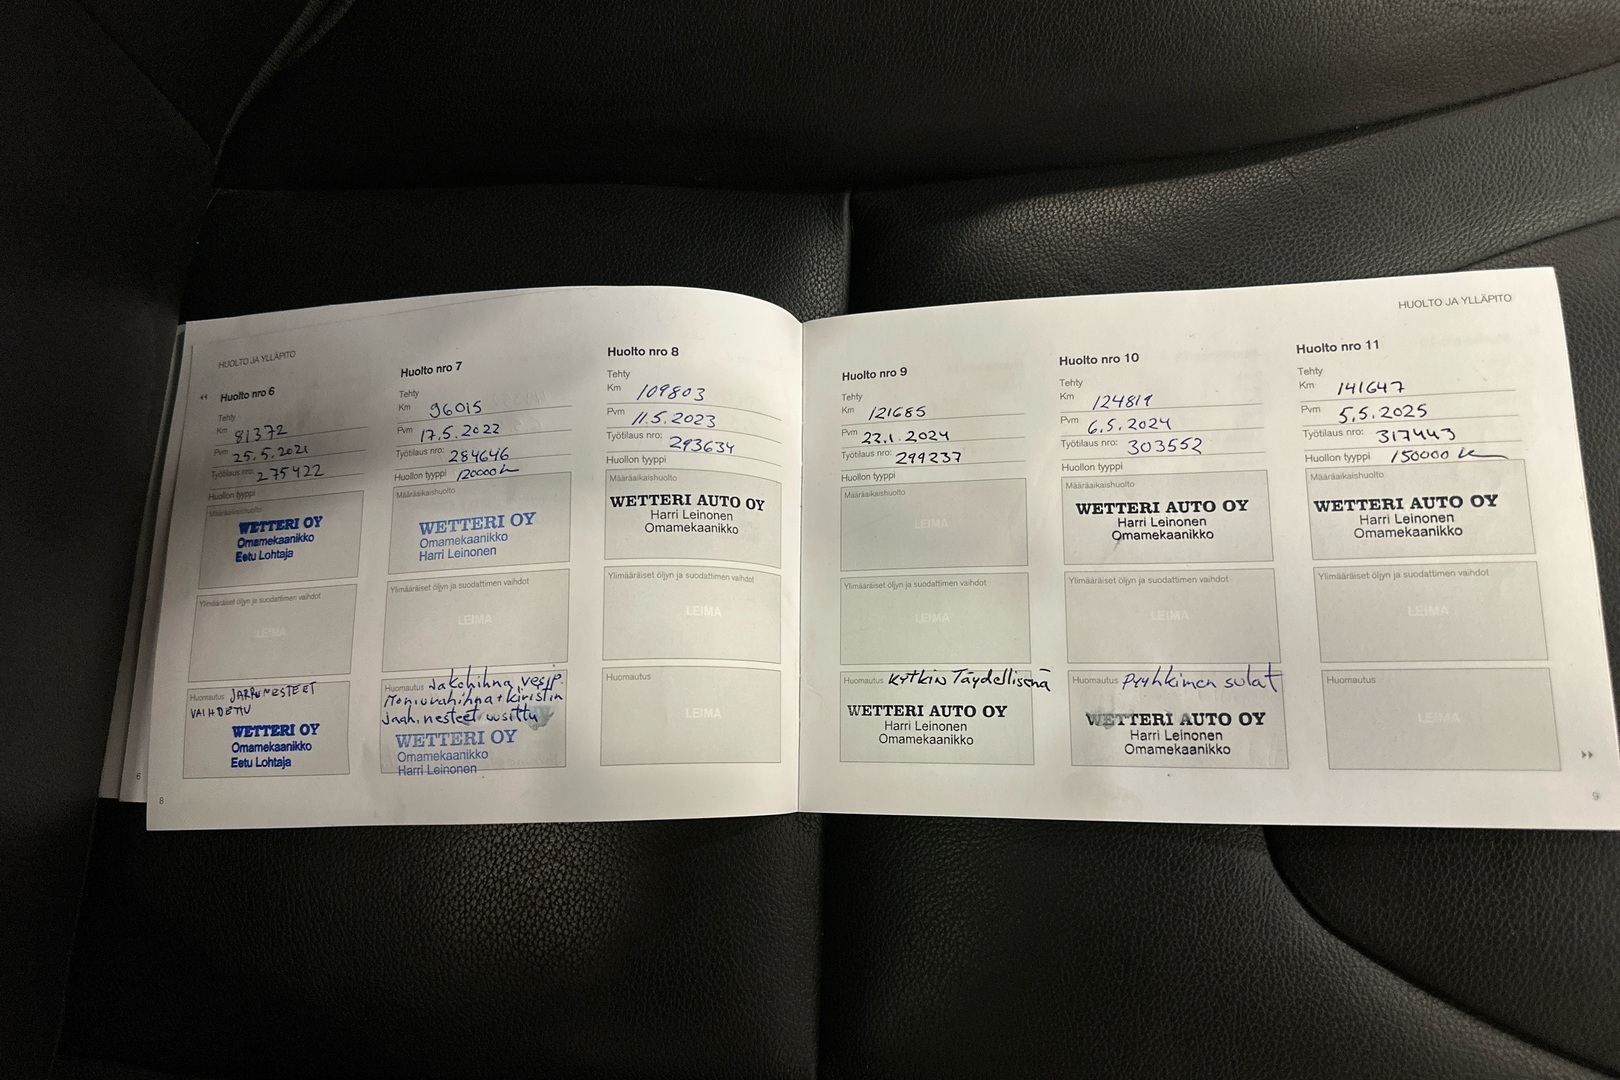 HUOLTO JA YLLÄPITO
Huolto nro 6
Tehty
Km 81372
Pvm 25.5.2021
Työtilaus nro: 275422
Huollon tyyppi
Määräaikaishuolto
WETTERI OY
Omamekaanikko
Eetu Lohtaja
Ylimääräiset öljyn ja suodattimen vaihdot
LEIMA
Huomautus JARRUNESTEET
VAIHDETTU
WETTERI OY
Omamekaanikko
Eetu Lohtaja
6
8
Huolto nro 7
Tehty
Km 96015
Pvm 17.5.2022
Työtilaus nro: 284646
Huollon tyyppi 120000 km
Määräaikaishuolto
WETTERI OY
Omamekaanikko
Harri Leinonen
Ylimääräiset öljyn ja suodattimen vaihdot
LEIMA
Huomautus Jakohihna, vesip.
Moniurahihna + kiristin
Jäähd. nesteet uusittu
WETTERI OY
Omamekaanikko
Harri Leinonen
Huolto nro 8
Tehty
Km 109803
Pvm 11.5.2023
Työtilaus nro: 293634
Huollon tyyppi
Määräaikaishuolto
WETTERI AUTO OY
Harri Leinonen
Omamekaanikko
Ylimääräiset öljyn ja suodattimen vaihdot
LEIMA
Huomautus
LEIMA
HUOLTO JA YLLÄPITO
Huolto nro 9
Tehty
Km 121685
Pvm 22.1.2024
Työtilaus nro: 299237
Huollon tyyppi
Määräaikaishuolto
LEIMA
Ylimääräiset öljyn ja suodattimen vaihdot
LEIMA
Huomautus Kytkin Täydellisenä
WETTERI AUTO OY
Harri Leinonen
Omamekaanikko
Huolto nro 10
Tehty
Km 124819
Pvm 6.5.2024
Työtilaus nro: 303552
Huollon tyyppi
Määräaikaishuolto
WETTERI AUTO OY
Harri Leinonen
Omamekaanikko
Ylimääräiset öljyn ja suodattimen vaihdot
LEIMA
Huomautus Pyyhkimen sulat
WETTERI AUTO OY
Harri Leinonen
Omamekaanikko
Huolto nro 11
Tehty
Km 141647
Pvm 5.5.2025
Työtilaus nro: 317443
Huollon tyyppi 150000 km
Määräaikaishuolto
WETTERI AUTO OY
Harri Leinonen
Omamekaanikko
Ylimääräiset öljyn ja suodattimen vaihdot
LEIMA
Huomautus
LEIMA
9